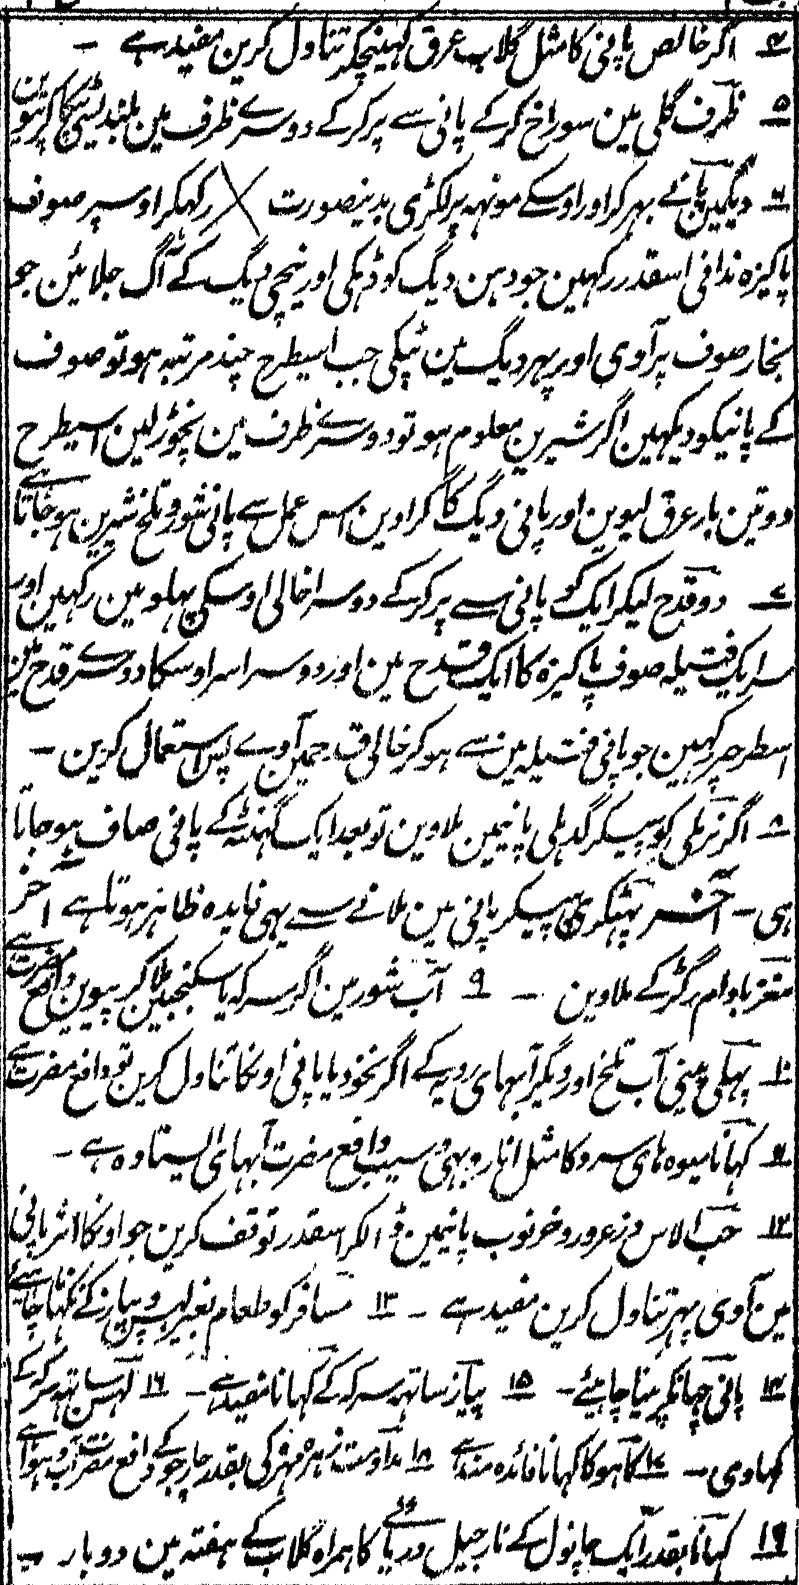 ۴ اگر خالص پانی کا مثل گلاب عرق کہینچکر تناول کرین مفید ہے ۔
۵ ظرف گلی مین سوراخ کر کے پانی سے پر کر کے دوسرے ظرف مین بلندیسی ٹپکا کر پیوین
۶ دیگمین پانی بہر کر اور اوسکے مونہہ پر لکڑی بدینصورت ╳ رکہکر اوسپر صوف
پاکیزہ ندافی اسقدر رکہین جو دہن دیگ کو ڈہکی اور نیچی دیگ کے آگ جلائین جو
بخار صوف پر آوی اور پہر دیگ مین ٹپکی جب اسیطرح چند مرتبہ ہو تو صوف
کے پانیکو دیکہین اگر شیرین معلوم ہو تو دوسرے ظرف مین نچوڑ لین اسیطرح
دو تین بار عرق لیوین اور پانی دیگ کا گرا دین اس عمل سے پانی شور و تلخ شیرین ہو جاتا ہے
۷ دو قدح لیکر ایک کو پانی سے پر کر کے دوسرا خالی اوسکی پہلو مین رکہین اور
سرا یک فتیلہ صوف پاکیزہ کا ایک قدح مین اور دوسرا سرا اوسکا دوسرے قدح مین
اسطرحپر رکہین جو پانی فتیلہ مین سے ہو کر خالی قدحمین آوے پس استعمال کرین ۔
۸ اگر نرملی کو پیسکر گدہلی پانیمین ملاوین تو بعد ایک گہنٹہ کے پانی صاف ہو جاتا
ہی ۔ آخر پہٹکری پیسکر پانی مین ملانے سے یہی فایدہ ظاہر ہوتا ہے آخر
مغز بادام رگڑ کے ملاوین ۔ ۹ آب شور مین اگر سرکہ یا سکنجبین ملا کر پیوین دافع مضرت ہے
۱۰ پہلی پینی آب تلخ اور دیگر آبہای ردیہ کے اگر نخود یا پانی اونکا تناول کرین تو دافع مضرت ہے
۱۱ کہانا میوہ ہای سرد کا مثل انار و بہی و سیب دافع مضرت آبہای ایستادہ ہے ۔
۱۲ حب الاس و زعرور و خرنوب پانیمین ڈالکر اسقدر توقف کرین جو اونکا اثر پانی
مین آوی پہر تناول کرین مفید ہے ۔ ۱۳ مسافر کو طعام بغیر لہسن و پیاز کے نکہانا چاہئے
۱۴ پانی چہانکر پینا چاہیئے ۔ ۱۵ پیاز ساتہہ سرکہ کے کہانا مفید ہے ۔ ۱۶ لہسن ساتہہ سرکہ کے
کہاوی ۔ ۱۷ کاہو کا کہانا فائدہ مند ہے ۱۸ مداومت زہر مہرہ کی بقدر چار جو کے دافع مضرت آب و ہوا ہے
۱۹ کہانا بقدر ایک چانول کے نارجیل دریائے کا ہمراہ گلاب کے ہفتہ مین دو بار ۔